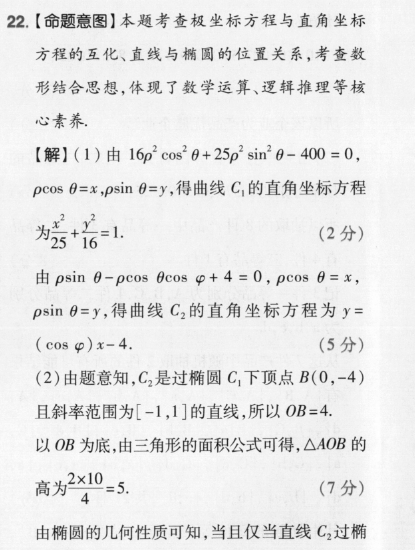 22.【命题意图】本题考查极坐标方程与直角坐标
方程的互化、直线与椭圆的位置关系,考查数
形结合思想,体现了数学运算、逻辑推理等核
心素养.
【解】(1)由 16ρ² cos² θ+25ρ² sin² θ-400=0,
ρcos θ=x,ρsin θ=y,得曲线 C₁的直角坐标方程
为x²/25+y²/16=1. (2分)
由 ρsin θ-ρcos θcos φ+4=0, ρcos θ=x,
ρsin θ=y,得曲线 C₂的直角坐标方程为 y=
(cos φ)x-4. (5分)
(2)由题意知,C₂是过椭圆 C₁下顶点 B(0,-4)
且斜率范围为[-1,1]的直线,所以 OB=4.
以 OB 为底,由三角形的面积公式可得,△AOB 的
高为2×10/4=5. (7分)
由椭圆的几何性质可知,当且仅当直线 C₂过椭